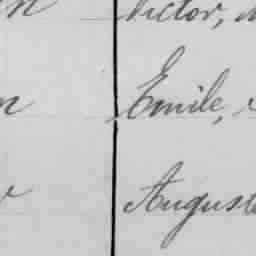 Victor,
Emile,
Auguste